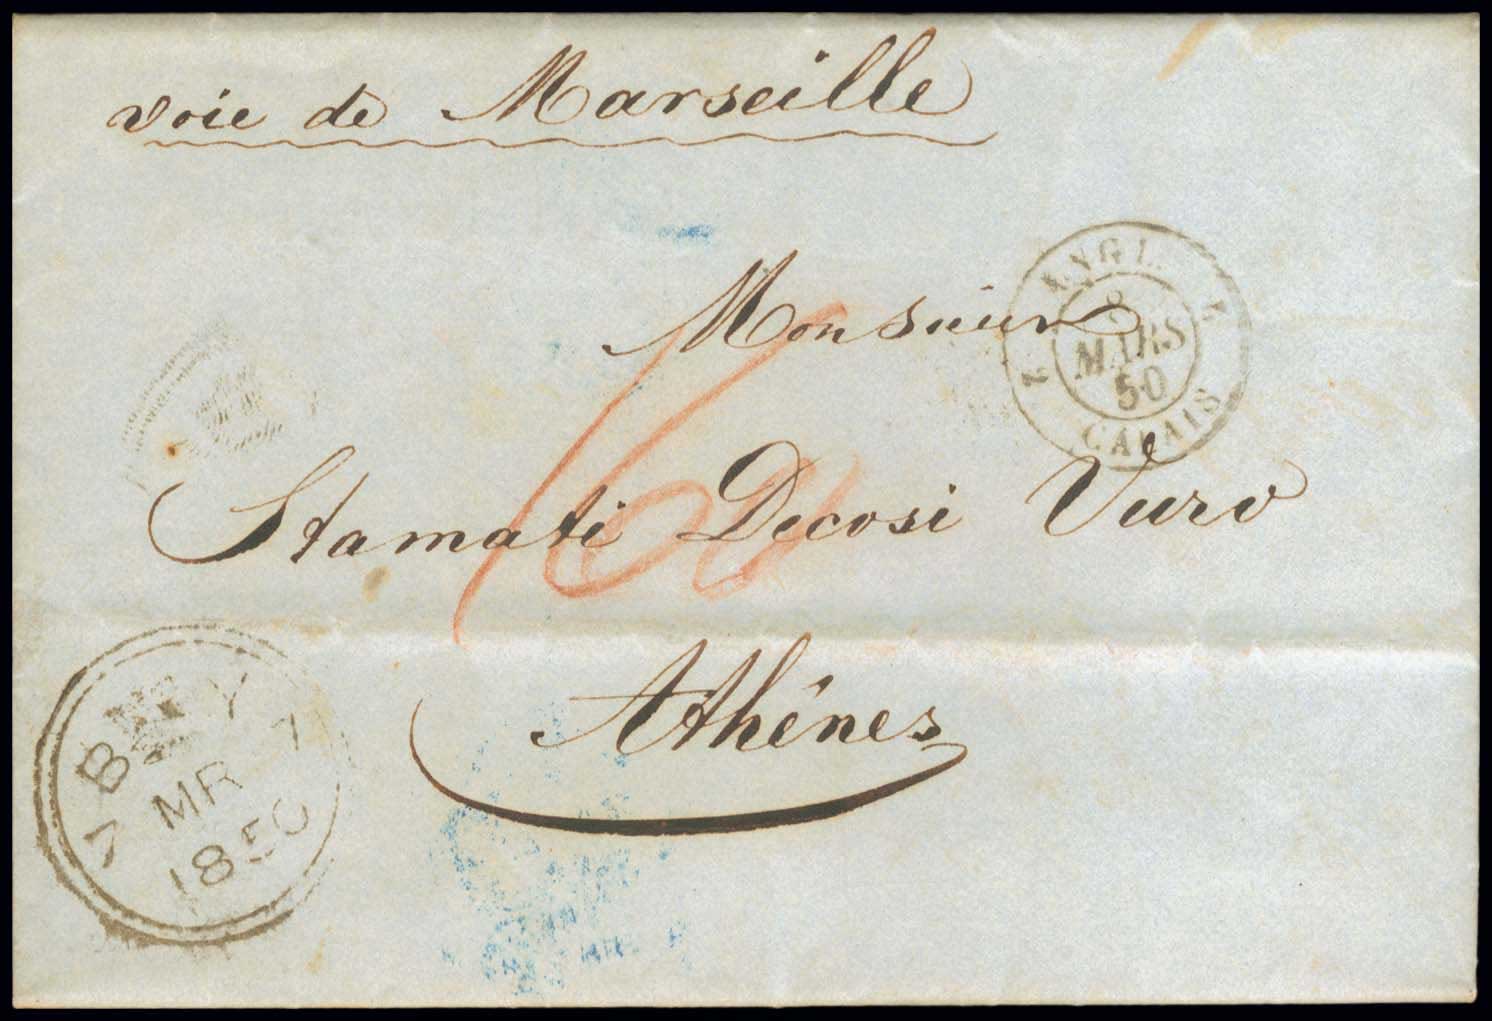 voie de Marseille
Monsieur
Stamati Decosi Vuro
Athénes
2 ANGL.
8
MARS
50
CALAIS
7 B Y 7
MR
1850